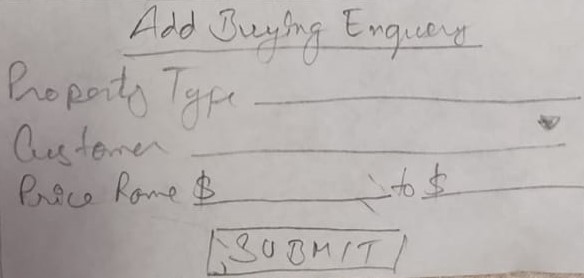 Add Buying Enquery
Property Type
Customer
Price Range $ to $
SUBMIT